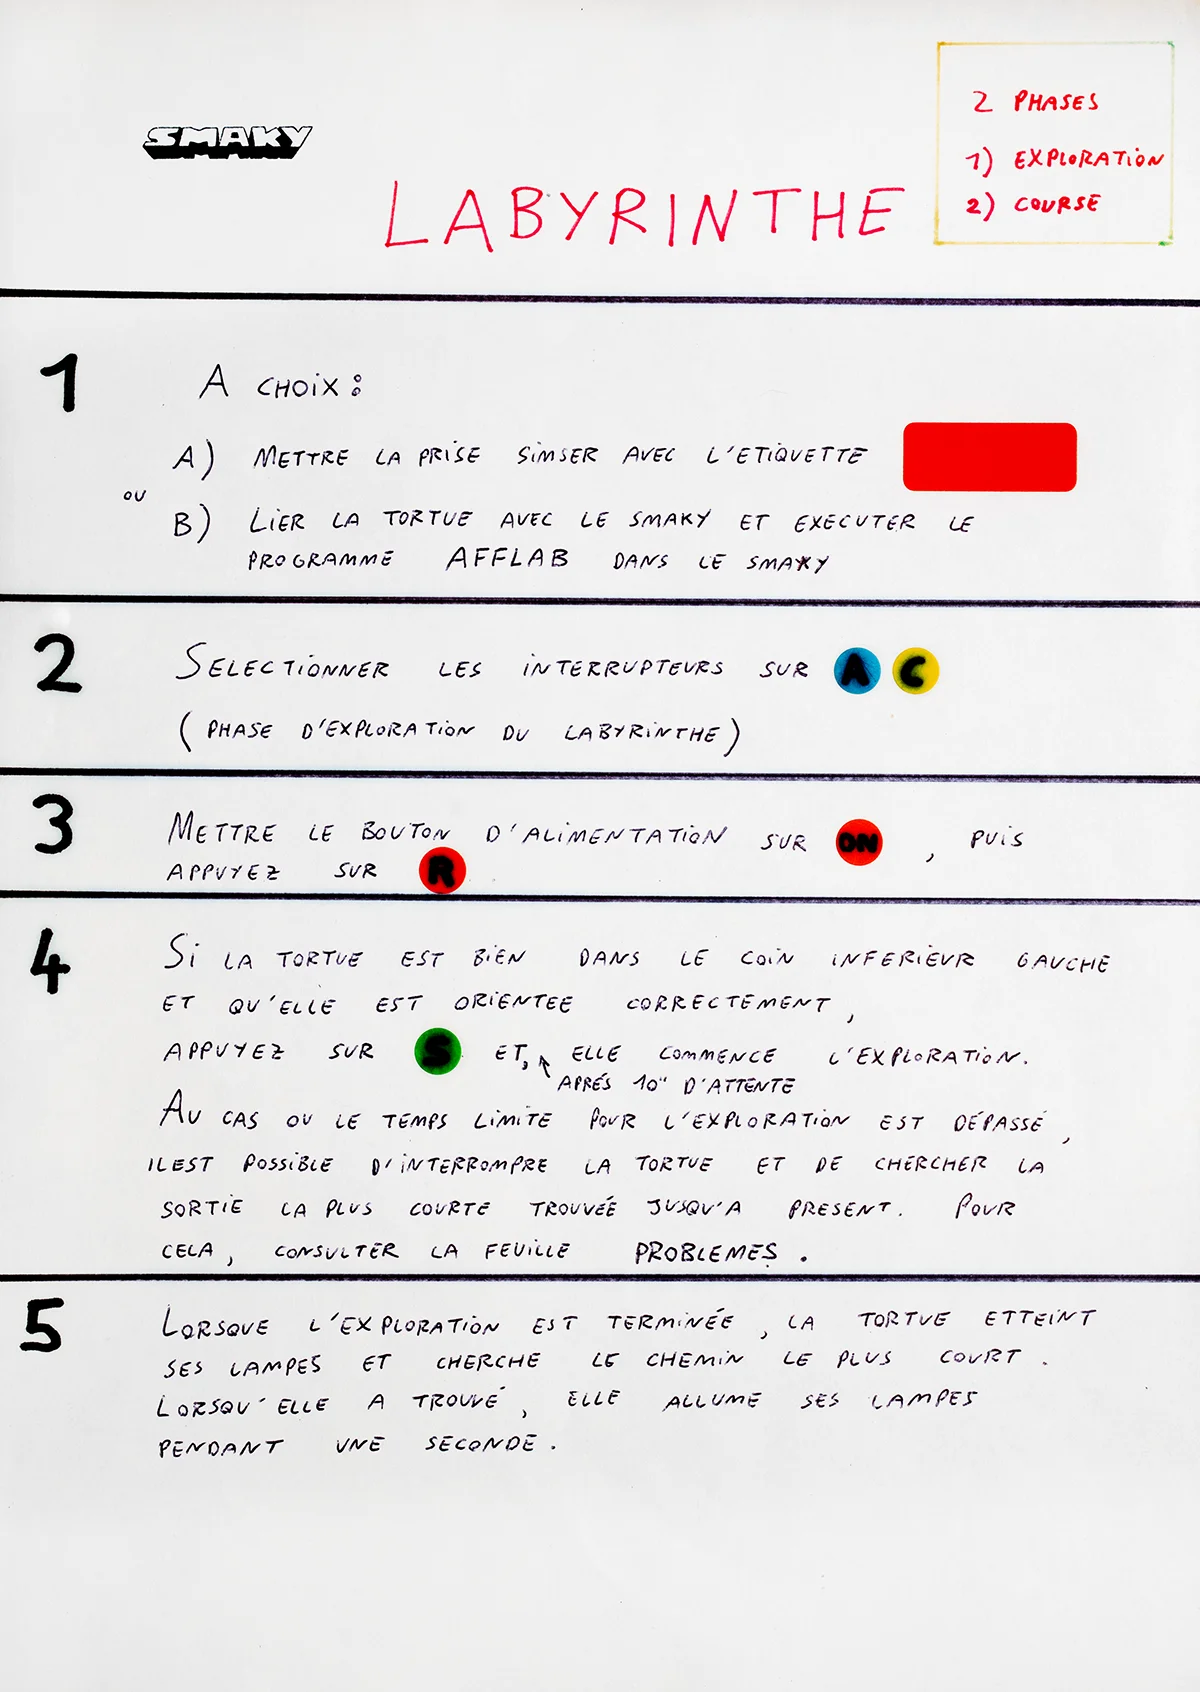 SMAKY
LABYRINTHE
2 PHASES
1) EXPLORATION
2) COURSE
1
A CHOIX :
A) METTRE LA PRISE SIMSER AVEC L'ETIQUETTE
OU
B) LIER LA TORTUE AVEC LE SMAKY ET EXECUTER LE
PROGRAMME AFFLAB DANS LE SMAKY
2
SELECTIONNER LES INTERRUPTEURS SUR A C
(PHASE D'EXPLORATION DU LABYRINTHE)
3
METTRE LE BOUTON D'ALIMENTATION SUR ON , PUIS
APPUYEZ SUR R
4
SI LA TORTUE EST BIEN DANS LE COIN INFERIEUR GAUCHE
ET QU'ELLE EST ORIENTEE CORRECTEMENT,
APPUYEZ SUR S ET, ELLE COMMENCE L'EXPLORATION.
APRÉS 10" D'ATTENTE
AU CAS OU LE TEMPS LIMITE POUR L'EXPLORATION EST DÉPASSÉ,
IL EST POSSIBLE D'INTERROMPRE LA TORTUE ET DE CHERCHER LA
SORTIE LA PLUS COURTE TROUVÉE JUSQU'A PRESENT. POUR
CELA, CONSULTER LA FEUILLE PROBLEMES.
5
LORSQUE L'EXPLORATION EST TERMINÉE, LA TORTUE ETTEINT
SES LAMPES ET CHERCHE LE CHEMIN LE PLUS COURT.
LORSQU'ELLE A TROUVÉ, ELLE ALLUME SES LAMPES
PENDANT UNE SECONDE.